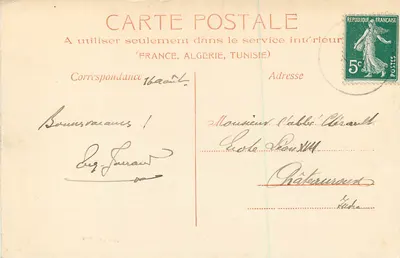 CARTE POSTALE
A utiliser seulement dans le service intérieur
(FRANCE, ALGERIE, TUNISIE)
RÉPUBLIQUE FRANÇAISE
5c
POSTES
Correspondance
Adresse
16 août
Bonnes vacances !
Monsieur l'abbé
Ecole Léon XIII
Châteauroux
Indre